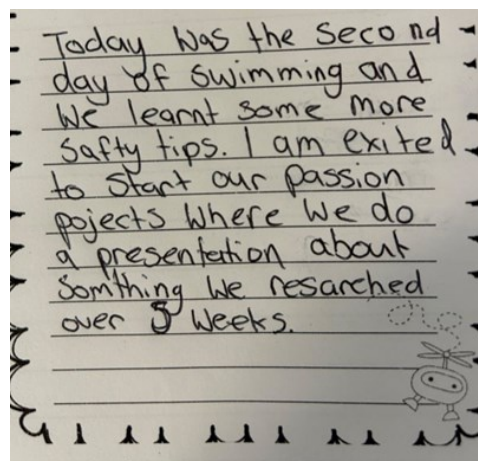 Today was the second
day of swimming and
We learnt some more
safty tips. I am exited
to start our passion
pojects where we do
a presentation about
somthing we resarched
over 5 weeks.